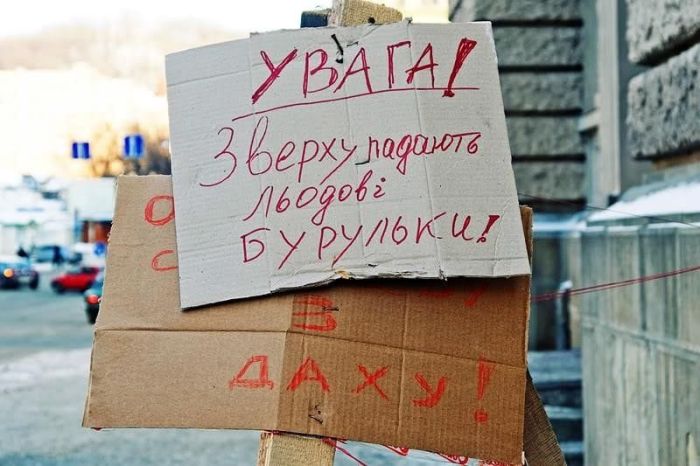 УВАГА!
Зверху падають
льодові
БУРУЛЬКИ!
О
С
З
ДАХУ!